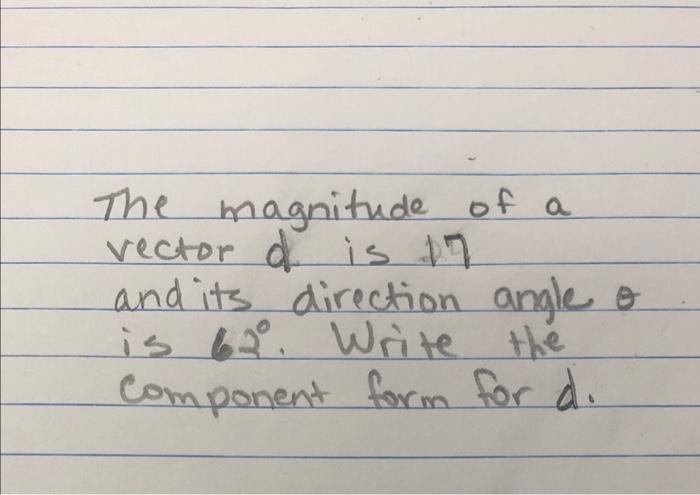 The magnitude of a
vector d is 17
and its direction angle θ
is 62°. Write the
component form for d.